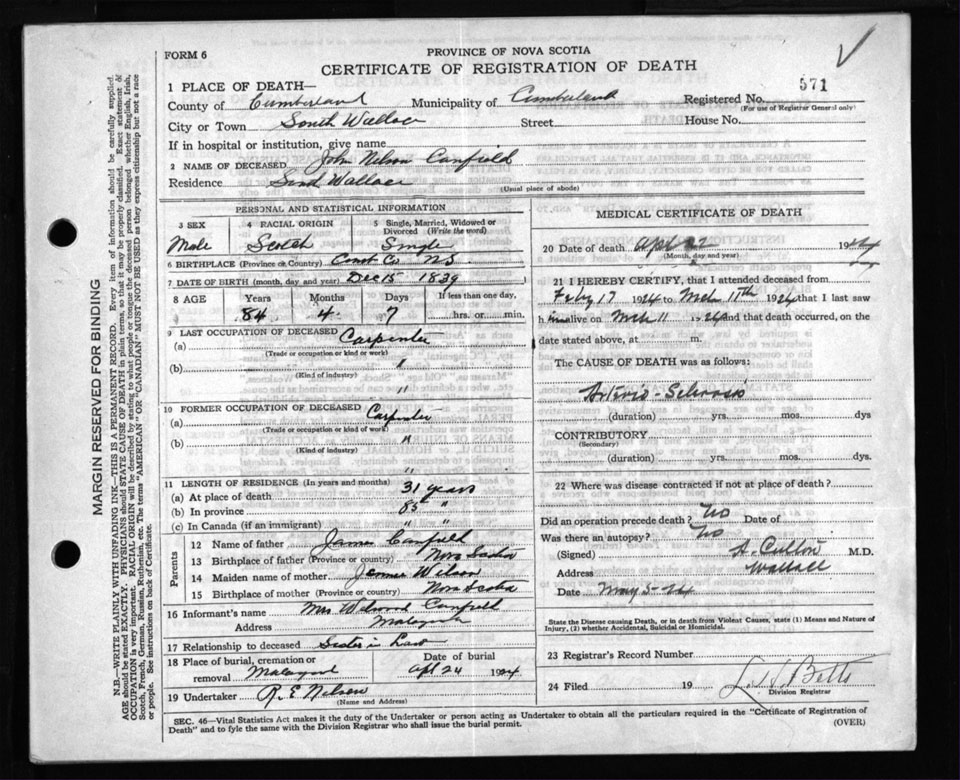 FORM 6
PROVINCE OF NOVA SCOTIA
CERTIFICATE OF REGISTRATION OF DEATH
571
1 PLACE OF DEATH—
County of Cumberland Municipality of Cumberland Registered No.
(For use of Registrar General only)
City or Town South Wallace Street House No.
If in hospital or institution, give name
2 NAME OF DECEASED John Nelson Canfield
Residence South Wallace
(Usual place of abode)
PERSONAL AND STATISTICAL INFORMATION
3 SEX 4 RACIAL ORIGIN 5 Single, Married, Widowed or Divorced (Write the word)
Male Scotch Single
6 BIRTHPLACE (Province or Country) Co NS
7 DATE OF BIRTH (month, day and year) Dec 15 1839
8 AGE Years Months Days If less than one day,
84 4 7 hrs. or min.
9 LAST OCCUPATION OF DECEASED
(a) Carpenter
(Trade or occupation or kind or work)
(b) "
(Kind of industry)
"
10 FORMER OCCUPATION OF DECEASED
(a) Carpenter
(Trade or occupation or kind of work)
(b) "
(Kind of industry)
"
11 LENGTH OF RESIDENCE (In years and months)
(a) At place of death 31 years
(b) In province 85 "
(c) In Canada (if an immigrant) " "
Parents
12 Name of father James Canfield
13 Birthplace of father (Province or country) Nova Scotia
14 Maiden name of mother Wilson
15 Birthplace of mother (Province or country) Nova Scotia
16 Informant's name Mrs Canfield
Address Malagash
17 Relationship to deceased Sister in Law
18 Place of burial, cremation or removal Date of burial
Malagash Apl 24 1924
19 Undertaker R. E. Nelson
(Name and Address)
MEDICAL CERTIFICATE OF DEATH
20 Date of death Apl 22 1924
(Month, day and year)
21 I HEREBY CERTIFY, that I attended deceased from
Feby 17 1924 to Mch 11th 1924 that I last saw
h im alive on Mch 11 1924 and that death occurred, on
date stated above, at m.
The CAUSE OF DEATH was as follows:
Arterio-Sclerosis
(duration) yrs. mos. dys
CONTRIBUTORY
(Secondary)
(duration) yrs. mos. dys.
22 Where was disease contracted if not at place of death?
Did an operation precede death? No Date of
Was there an autopsy? No
(Signed) M.D.
Address Wallace
Date May 5-24
State the Disease causing Death, or in death from Violent Causes, state (1) Means and Nature of
Injury, (2) whether Accidental, Suicidal or Homicidal.
23 Registrar's Record Number
24 Filed 19
Division Registrar
SEC. 46—Vital Statistics Act makes it the duty of the Undertaker or person acting as Undertaker to obtain all the particulars required in the "Certificate of Registration of
Death" and to fyle the same with the Division Registrar who shall issue the burial permit.
(OVER)
MARGIN RESERVED FOR BINDING
N.B.—WRITE PLAINLY WITH UNFADING INK—THIS IS A PERMANENT RECORD. Every item of information should be carefully supplied.
AGE should be stated EXACTLY. PHYSICIANS should STATE CAUSE OF DEATH in plain terms, so that it may be properly classified. Exact statement of
OCCUPATION is very important. RACIAL ORIGIN will be described by stating to what people or tongue the deceased person belonged whether English, Irish,
Scotch, French, German, Russian, Ruthenian, etc. The terms "AMERICAN" or "CANADIAN" MUST NOT BE USED as they express citizenship but not a race
or people. See instructions on back of Certificate.